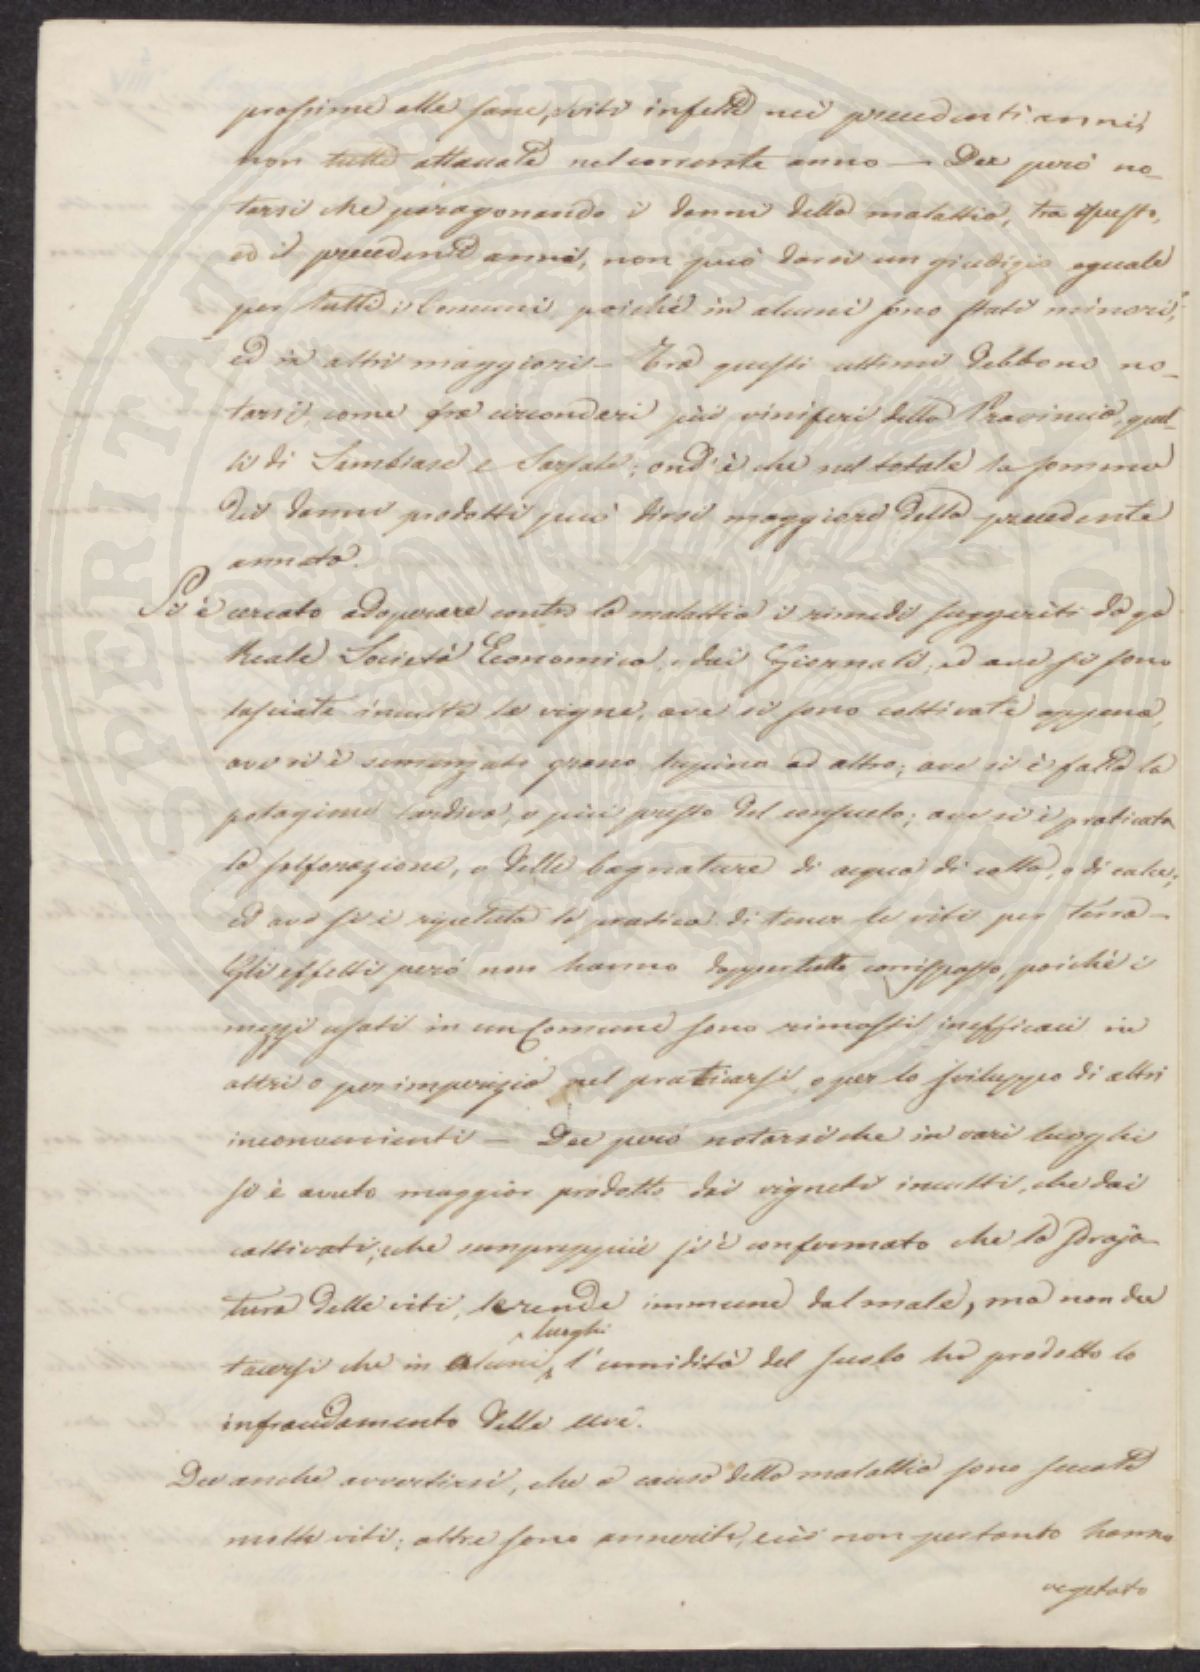 prossime alle sane, viti infette nei precedenti anni,
non tutte attaccate nel corrente anno — Dee però no-
tarsi che paragonando i danni della malattia, tra questo,
ed i precedenti anni, non può darsi un giudizio eguale
per tutti i Comuni poichè in alcuni sono stati minori,
ed in altri maggiori — Tra questi ultimi debbono no-
tarsi, come fra circondari più viniferi della Provincia, quel-
li di Sambiase e ; ond'è che nel totale la somma
dei danni prodotti può dirsi maggiore della precedente
annata.
Si è cercato adoperare contro la malattia i rimedi suggeriti da
Reale Società Economica, e dai Giornali, ed ove si sono
lasciate inculte le vigne, ove si sono coltivate appena,
ove si è semenzato grano lupino ad altro; ove si è fatta la
potagione tardiva, o più presto del consueto; ove si è praticata
la solforazione, o delle bagnature di acqua di colla, o di calce;
ed ove si è ripetuta la pratica di tener le viti per terra —
Gli effetti però non hanno dappertutto corrisposto, poichè i
mezzi usati in un Comune sono rimasti inefficaci in
altri o per imperizia nel praticarsi, o per lo sviluppo di altri
inconvenienti — Dee però notarsi che in vari luoghi
si è avuto maggior prodotto dai vigneti inculti, che dai
coltivati, che sempreppiù si è confermato che la sdraja-
tura delle viti, le rende immune dal male, ma non dee
luoghi
tacersi che in alcuni, l'umidità del suolo ha prodotto lo
infracidamento delle uve.
Dee anche avvertirsi, che a causa della malattia sono seccate
molte viti; altre sono annerite, ciò non pertanto hanno
vegetato